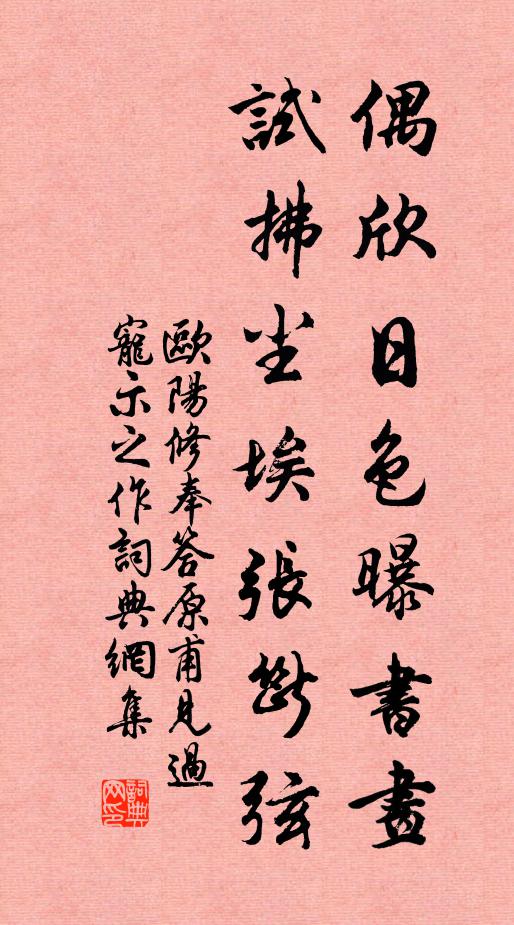 偶欣日色曝書畫
試拂尘埃張斷弦
歐陽修奉答原甫見過
寵示之作詞典網集
詞典网印